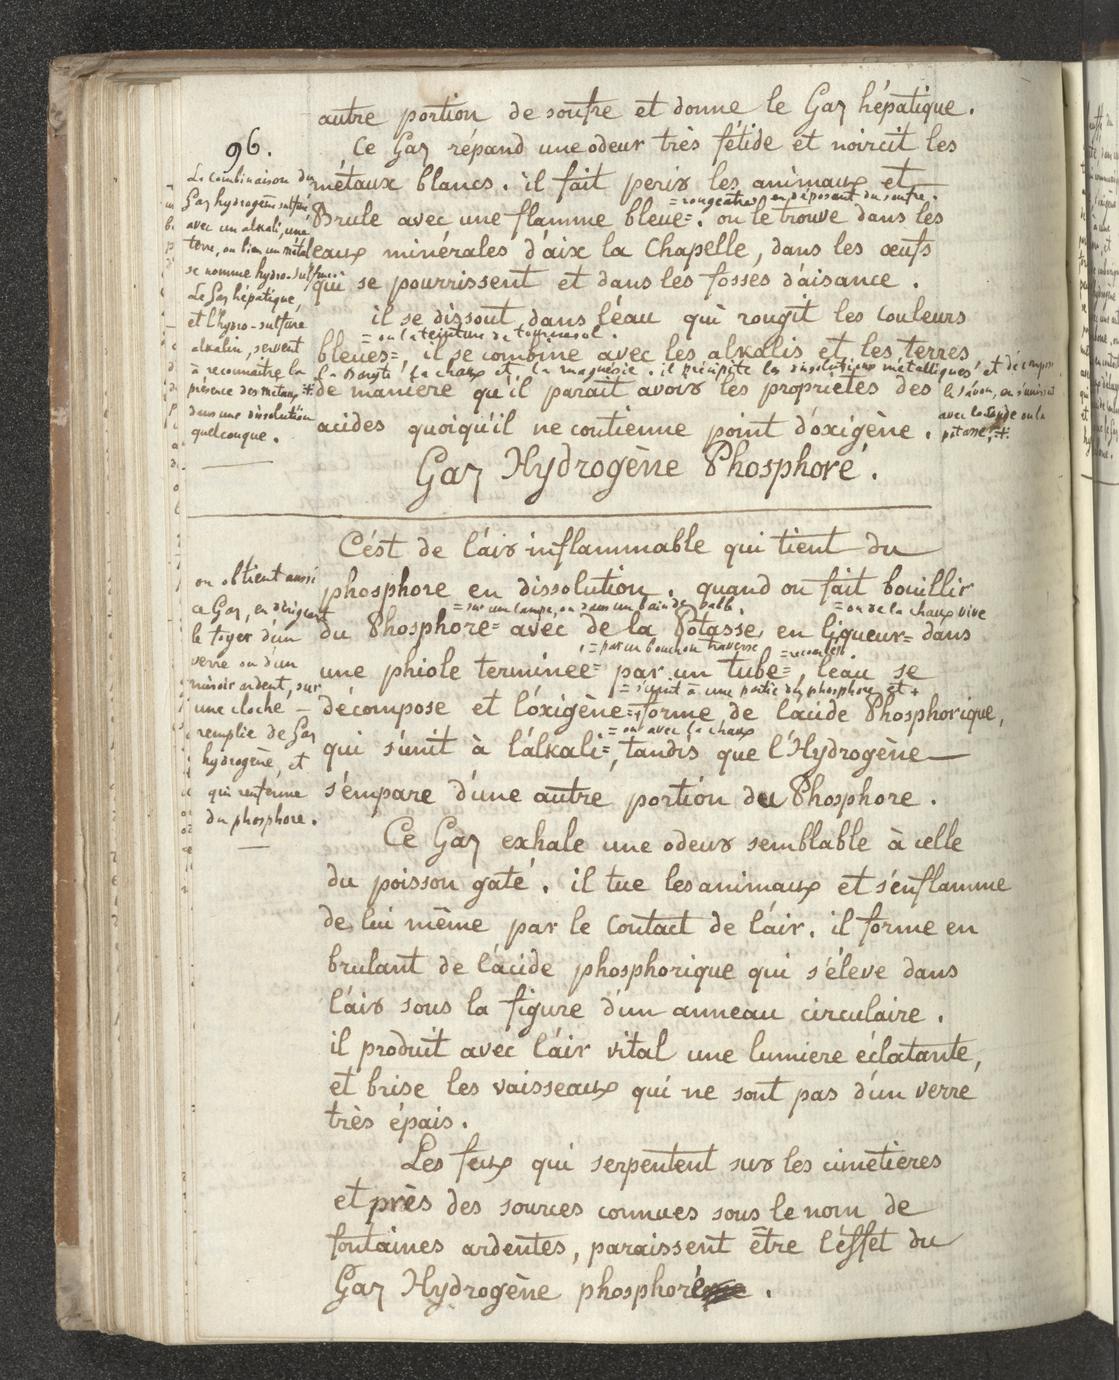 96.
autre portion de soufre et donne le Gaz hépatique.
Ce Gaz répand une odeur très fétide et noircit les
métaux blancs. il fait perir les animaux et
= rougeatre, en déposant du soufre.
Brule avec une flamme bleue=. on le trouve dans les
eaux minérales d'aix la Chapelle, dans les œufs
qui se pourrissent et dans les fosses d'aisance.
il se dissout dans l'eau qui rougit les couleurs
= ou la teinture de tournesol.
bleues=, il se combine avec les alkalis et les terres
la Baryte, la chaux et la magnesie. il précipite les dissolutions métalliques, et décompose
de maniere qu'il parait avoir les propriétés des
acides quoiqu'il ne contienne point d'oxigène.
le savon, en s'unissant
avec la soude ou la
potasse. +
La combinaison du
Gaz hydrogène sulfuré
avec un alkali, une
terre, ou bien un métal
se nomme hydro-sulfure.
Le Gaz hépatique,
et l'hydro-sulfure
alkalin, servent
à reconnaître la
présence des métaux
dans une dissolution
quelconque.
Gaz Hydrogène Phosphoré.
C'est de l'air inflammable qui tient du
phosphore en dissolution. quand on fait bouillir
= sur un lampe, ou dans un bain de sable,
= ou de la chaux vive
du Phosphore= avec de la Potasse, en liqueur= dans
= par un bouchon traversé
= recourbé.
une phiole terminée= par un tube=, l'eau se
= s'unit à une partie du phosphore et +
décompose et l'oxigène=+forme de l'acide Phosphorique,
= ou avec la chaux
qui s'unit à l'alkali=, tandis que l'Hydrogène
s'empare d'une autre portion du Phosphore.
on obtient aussi
ce Gaz, en dirigeant
le foyer d'un
verre ou d'un
miroir ardent, sur
une cloche
remplie de Gaz
hydrogène, et
qui renferme
du phosphore.
Ce Gaz exhale une odeur semblable à celle
du poisson gaté. il tue les animaux et s'enflamme
de lui même par le Contact de l'air. il forme en
brulant de l'acide phosphorique qui s'éleve dans
l'air sous la figure d'un anneau circulaire.
il produit avec l'air vital une lumiere éclatante,
et brise les vaisseaux qui ne sont pas d'un verre
très épais.
Les feux qui serpentent sur les cimetieres
et près des sources connues sous le nom de
fontaines ardentes, paraissent être l'effet du
Gaz Hydrogène phosphoré.